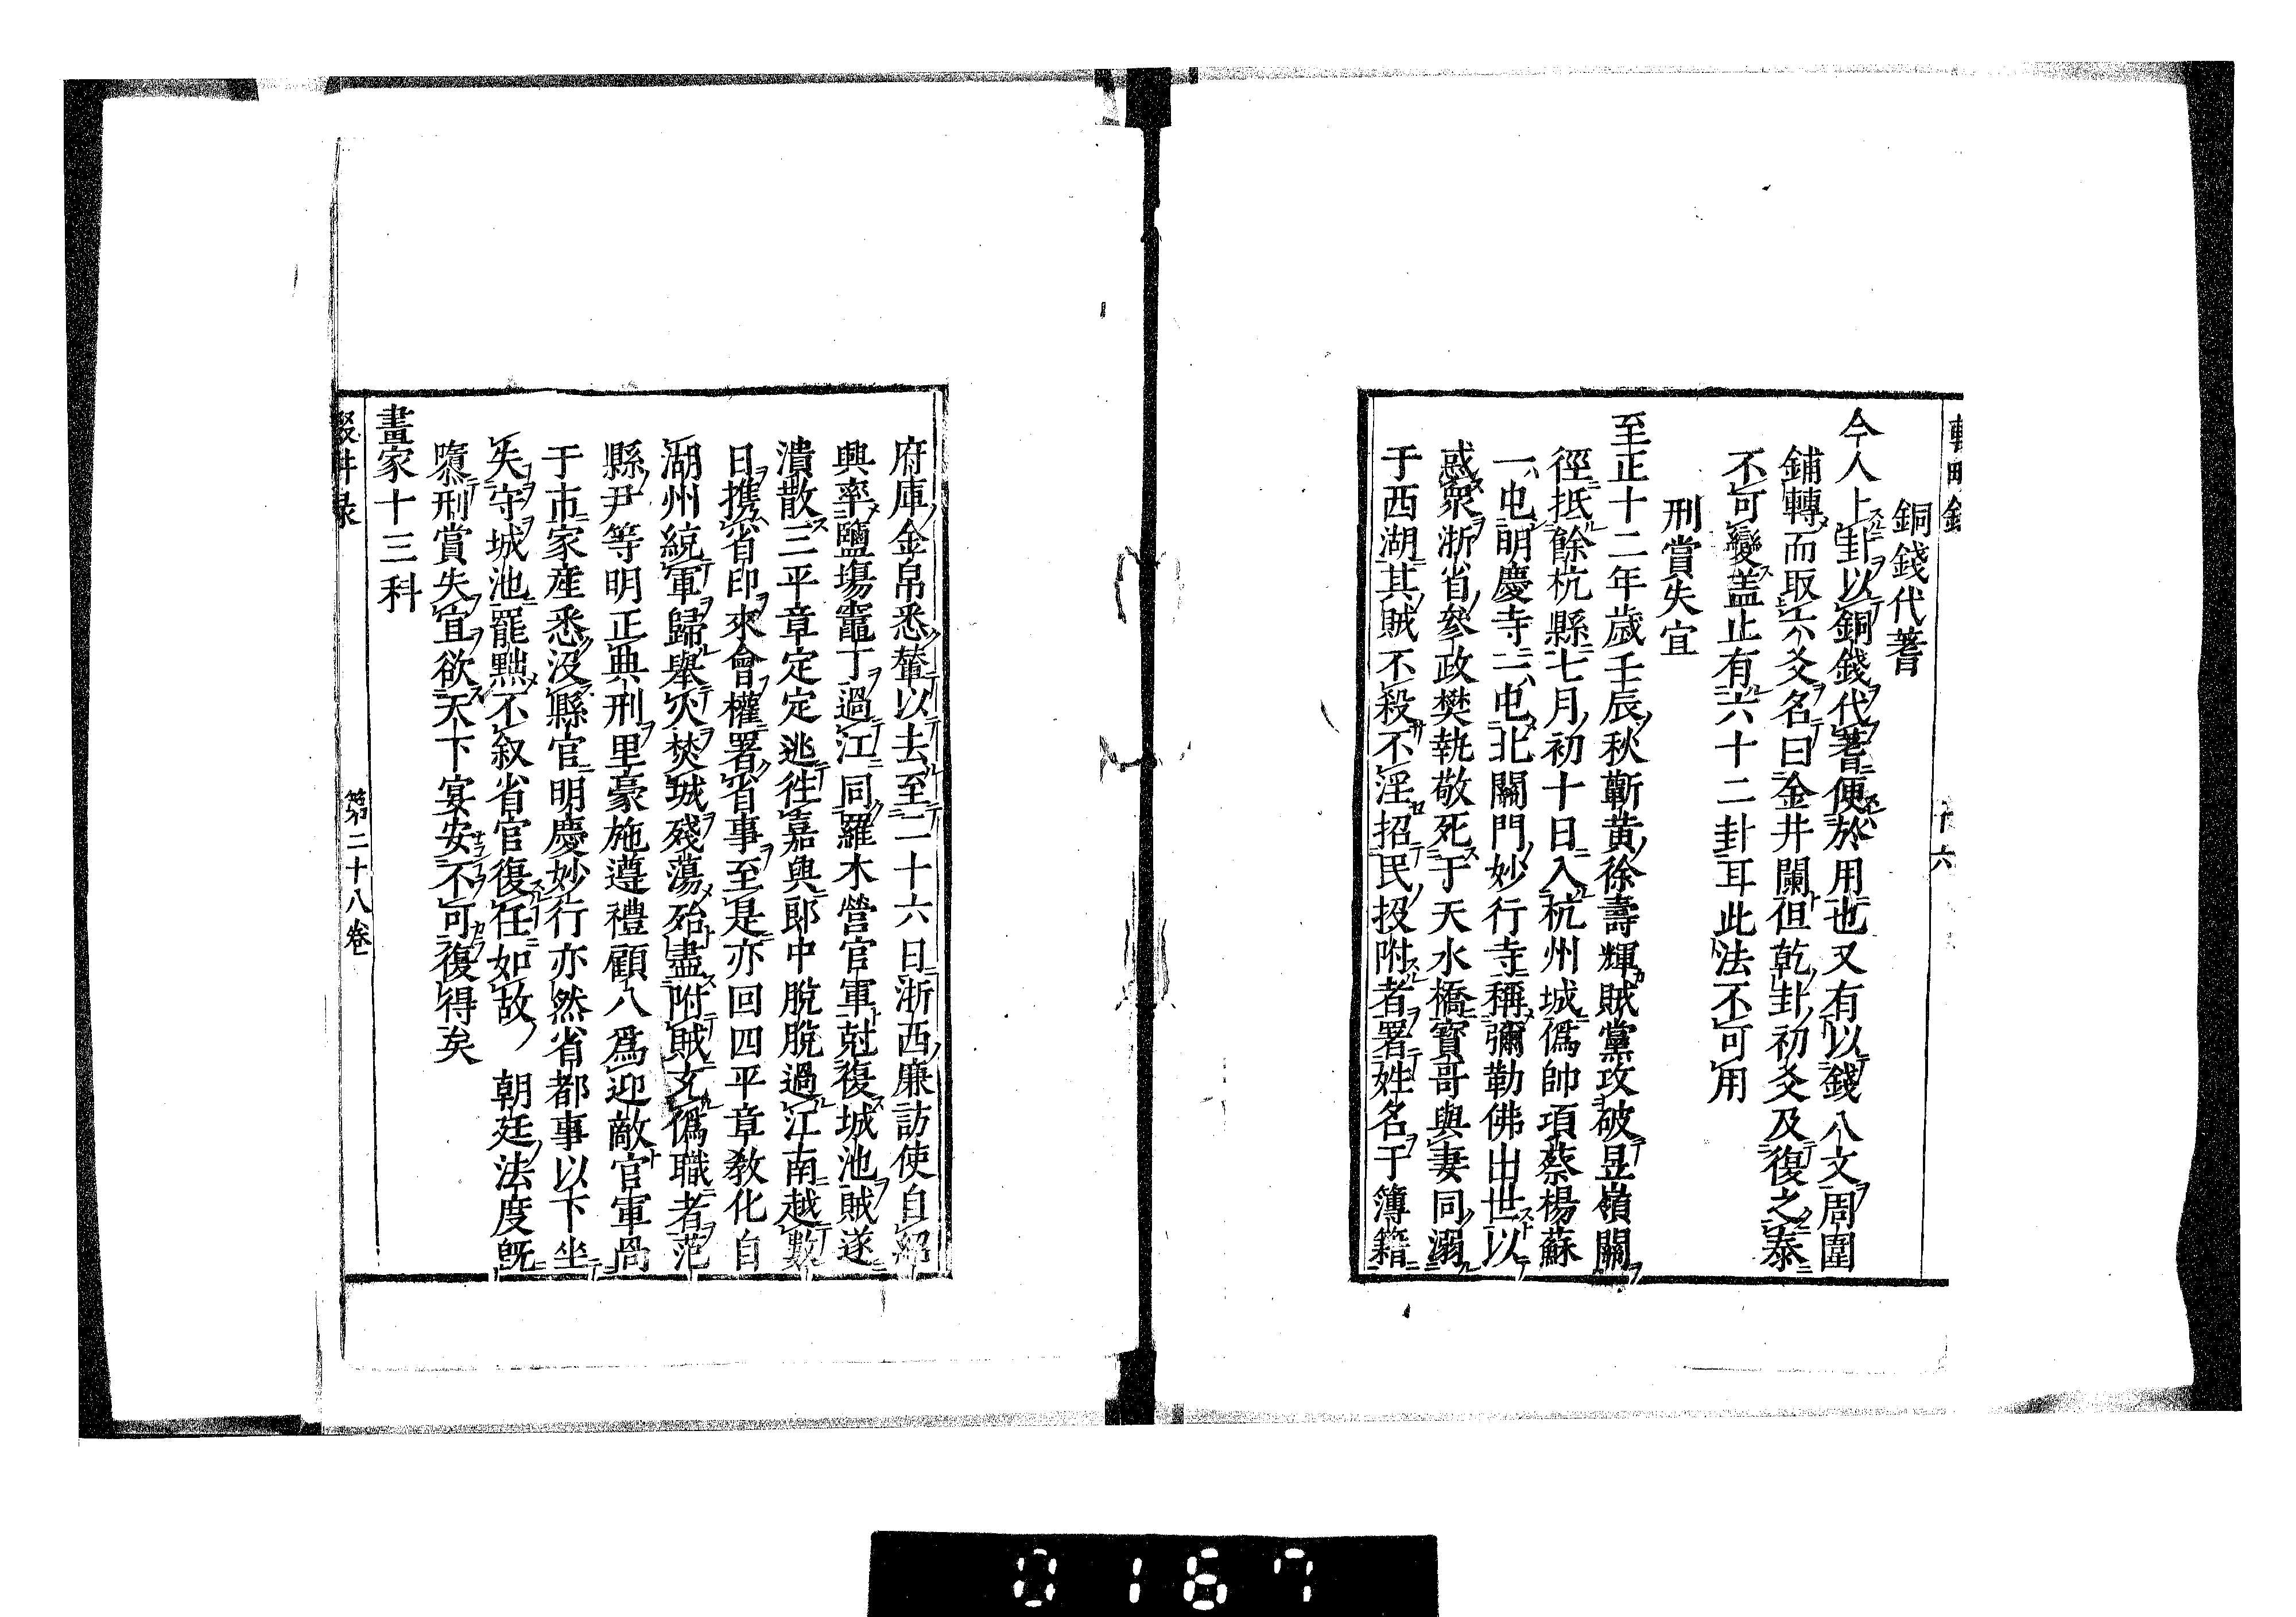 銅錢代蓍
今人上卦以銅錢代蓍便於用也又有以錢八文周圍
鋪轉而取六爻名曰金井闌但乾卦初爻及復之泰
不可變盖止有六十二卦耳此法不可用
刑賞失宜
至正十二年歲壬辰秋蘄黃徐壽輝賊黨攻破昱嶺關
徑抵餘杭縣七月初十日入杭州城僞帥項蔡楊蘇
一屯明慶寺一屯北關門妙行寺稱彌勒佛出世以
惑衆浙省參政樊執敬死于天水橋寳哥與妻同溺
于西湖其賊不殺不淫招民投附者署姓名于簿籍
府庫金帛悉輦以去至二十六日浙西廉訪使自紹
興率鹽塲竈丁過江同羅木營官軍尅復城池賊遂
潰散三平章定定逃徃嘉興郎中脫脫過江南越數
日携省印來會權署省事至是亦回四平章敎化自
湖州統軍歸舉火焚城殘蕩殆盡附賊充僞職者范
縣尹等明正典刑里豪施遵禮顧八爲迎敵官軍咼
于市家產悉沒縣官明慶妙行亦然省都事以下坐
失守城池罷黜不叙省官復任如故 朝廷法度旣
隳刑賞失宜欲天下宴安不可復得矣
畫家十三科
輟畊录
第二十八卷